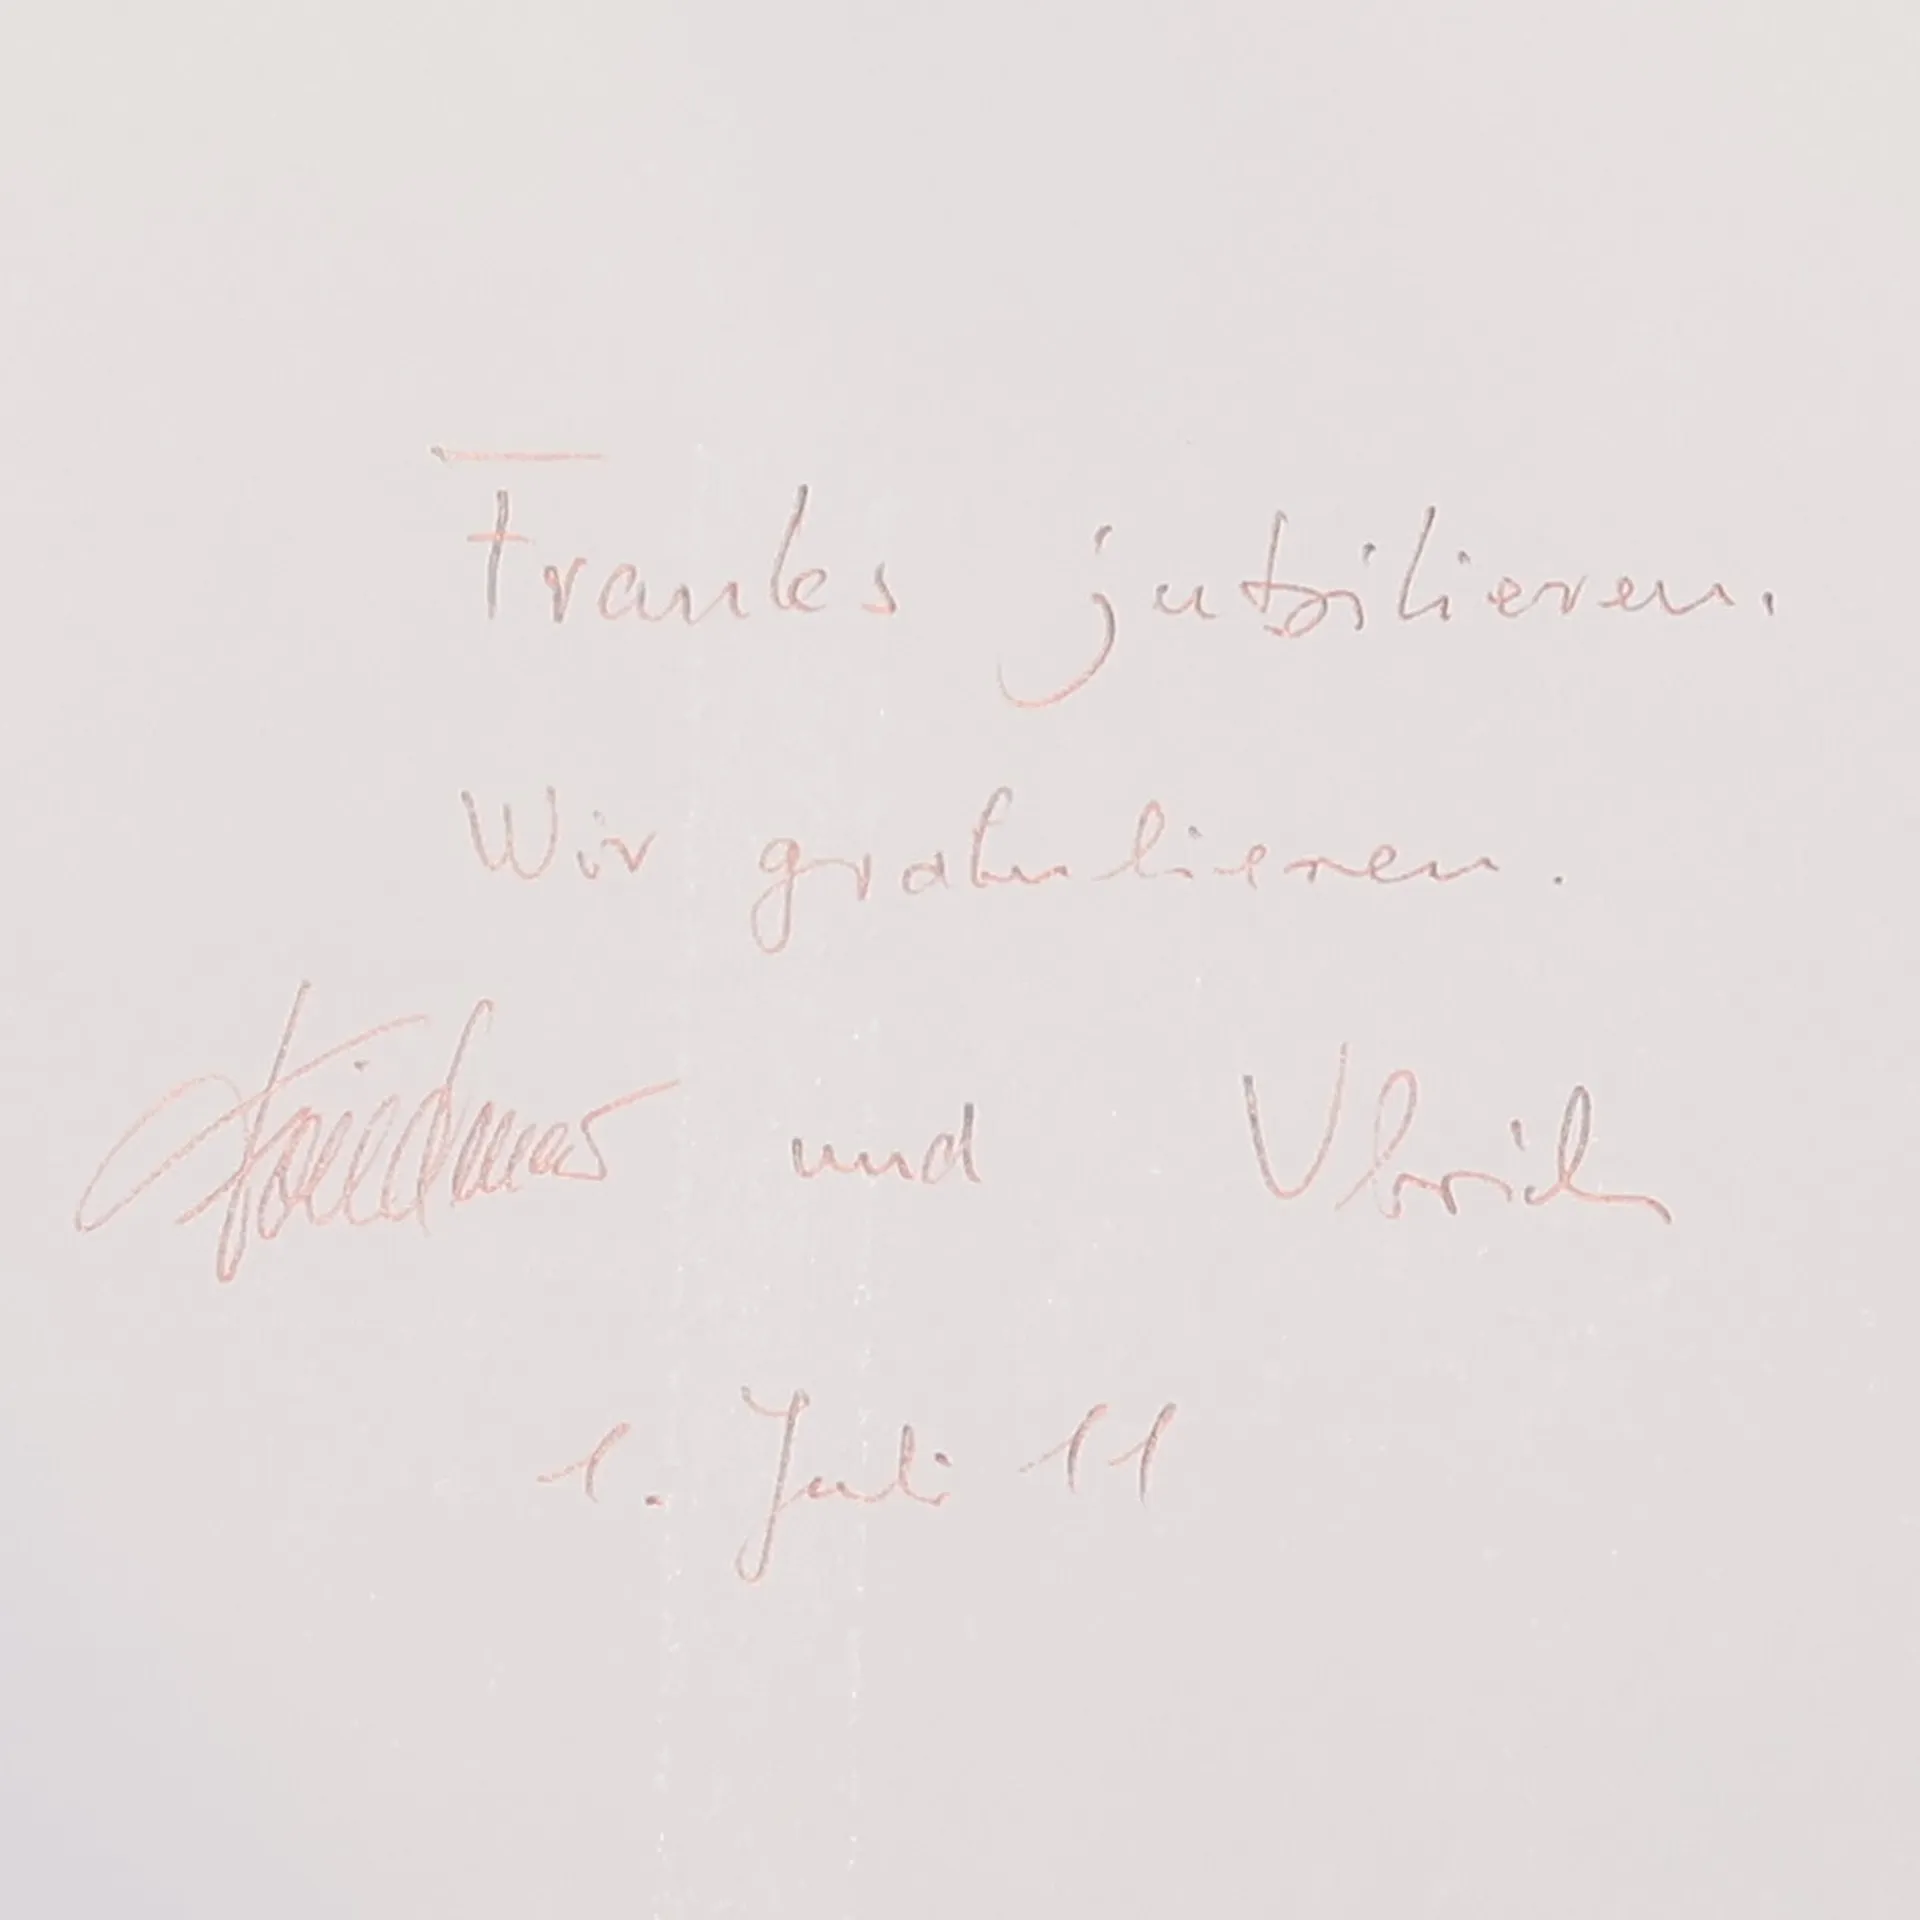 Franks jubilieren.
Wir gratulieren.
und Ulrich
1. Juli 11